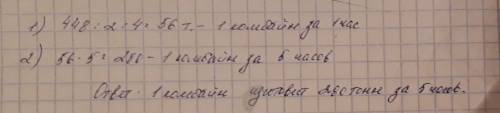 1) 448 : 2 : 4 = 56 т. - 1 комбайн за 1 час
2) 56 · 5 = 280 - 1 комбайн за 5 часов
Ответ · 1 комбайн изготовит 280 тонн за 5 часов.